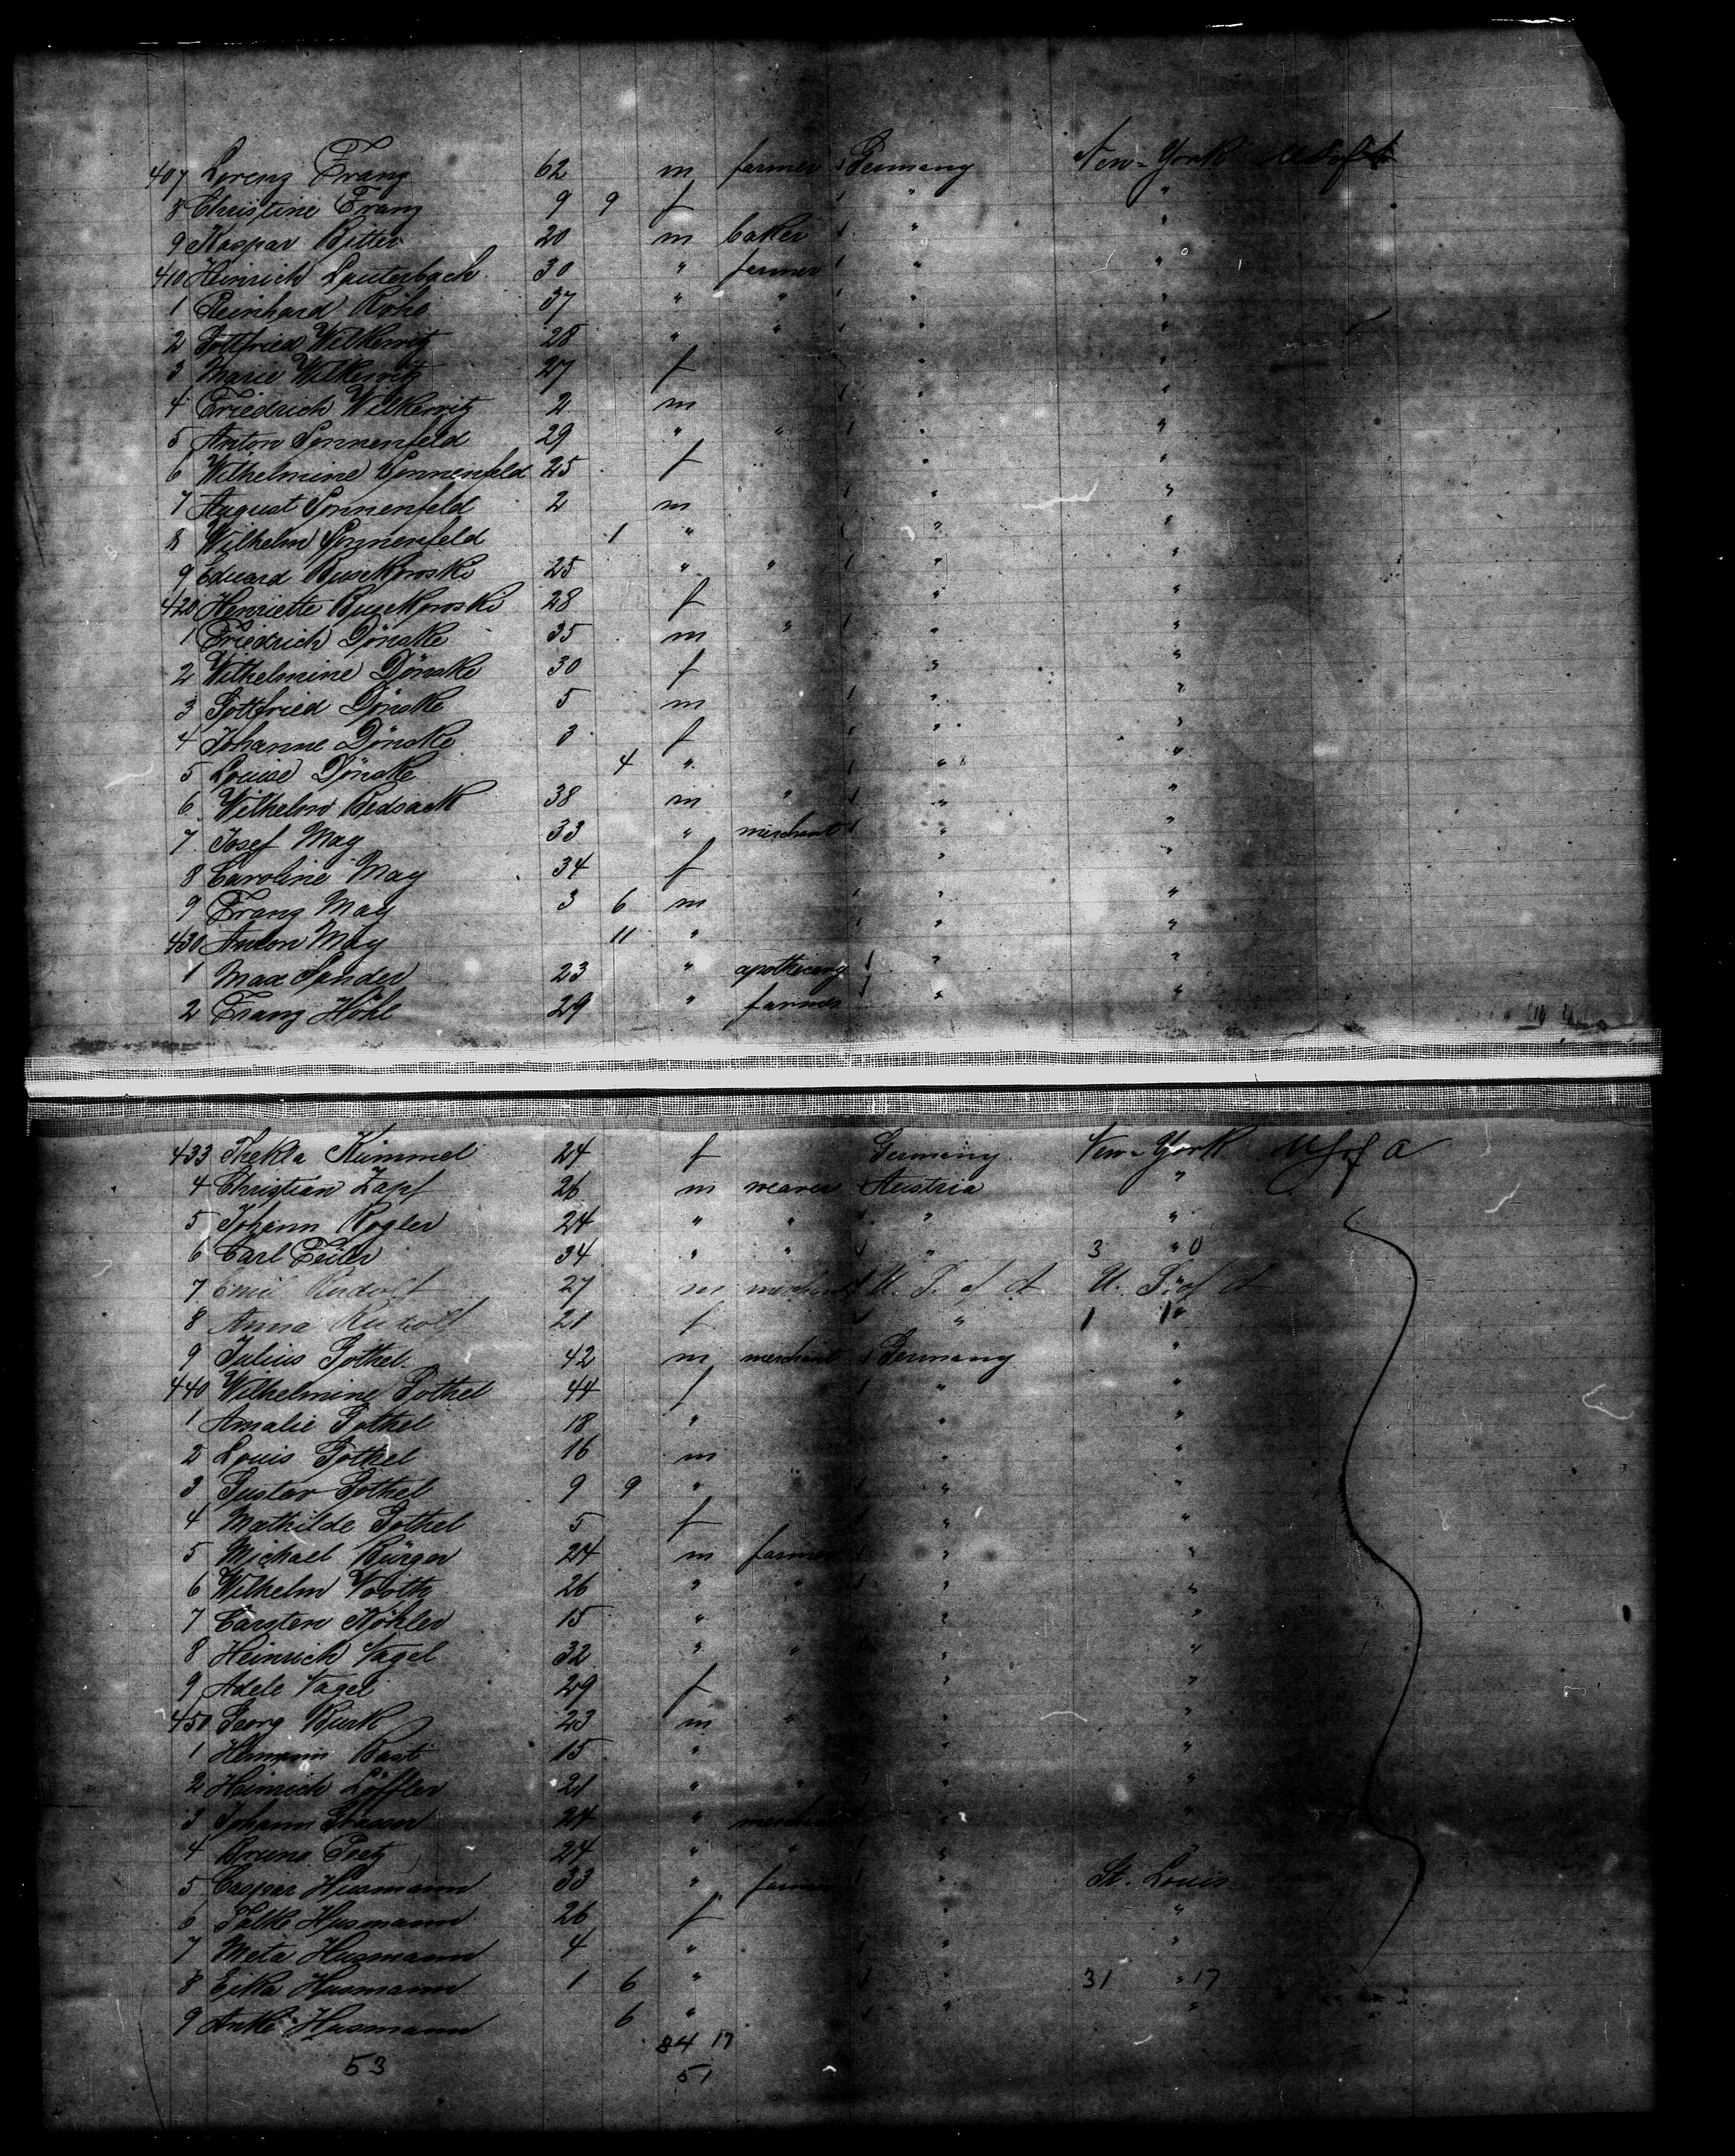 407 Lorenz Franz 62 m farmer Germany New-York U S of A
8 Christine Franz 9 9 f " "
9 Kaspar Ritter 20 m baker " "
410 Heinrich Lauterbach 30 " farmer " "
1 Reinhard Köhl 37 " " " "
2 Gottfried Wilkewitz 28 " " " "
3 Marie Wilkewitz 27 f " "
4 Friedrich Wilkewitz 2 m " "
5 Anton Sonnenfeld 29 " " " "
6 Wilhelmine Sonnenfeld 25 f " "
7 August Sonnenfeld 2 m " "
8 Wilhelm Sonnenfeld 1 " " "
9 Eduard Busekowski 25 " " " "
420 Henriette Busekowski 28 f " "
1 Friedrich Dönske 35 m " " "
2 Wilhelmine Dönske 30 f " "
3 Gottfried Dönske 5 m " "
4 Johanne Dönske 3 f " "
5 Louise Dönske 4 " " "
6 Wilhelm Bedsack 38 m " " "
7 Josef May 33 " merchant " "
8 Caroline May 34 f " "
9 Franz May 3 6 m " "
430 Anton May 11 " " "
1 Max Sander 23 " apothecary " "
2 Franz Höhl 29 " farmer " "
433 Thekla Kümmel 24 f Germany New-York U S of A
4 Christian Zapf 26 m weaver Austria "
5 Johann Rogler 24 " " " "
6 Carl Feiler 34 " " " 3 " 0
7 Emil Rudolf 27 m merchant U. S. of A U. S. of A
8 Anna Rudolf 21 f " 1 1 "
9 Julius Gothel 42 m merchant Germany "
440 Wilhelmine Gothel 44 f " "
1 Amalie Gothel 18 " " "
2 Louis Gothel 16 m " "
3 Gustav Gothel 9 9 " " "
4 Mathilde Gothel 5 f " "
5 Michael Bürger 24 m farmer " "
6 Wilhelm Vooth 26 " " " "
7 Carsten Köhler 15 " " "
8 Heinrich Nagel 32 " " " "
9 Adele Nagel 29 f " "
450 Georg Burk 23 m " " "
1 Hermann Bast 15 " " "
2 Heinrich Löffler 21 " " " "
3 Johann Strasser 24 " merchant " "
4 Bruno Peetz 24 " " " "
5 Caspar Husmann 33 " farmer " St. Louis
6 Talke Husmann 26 f " "
7 Meta Husmann 4 " " "
8 Eika Husmann 1 6 " " 31 " 17
9 Anke Husmann 6 " " "
34 17
53 51